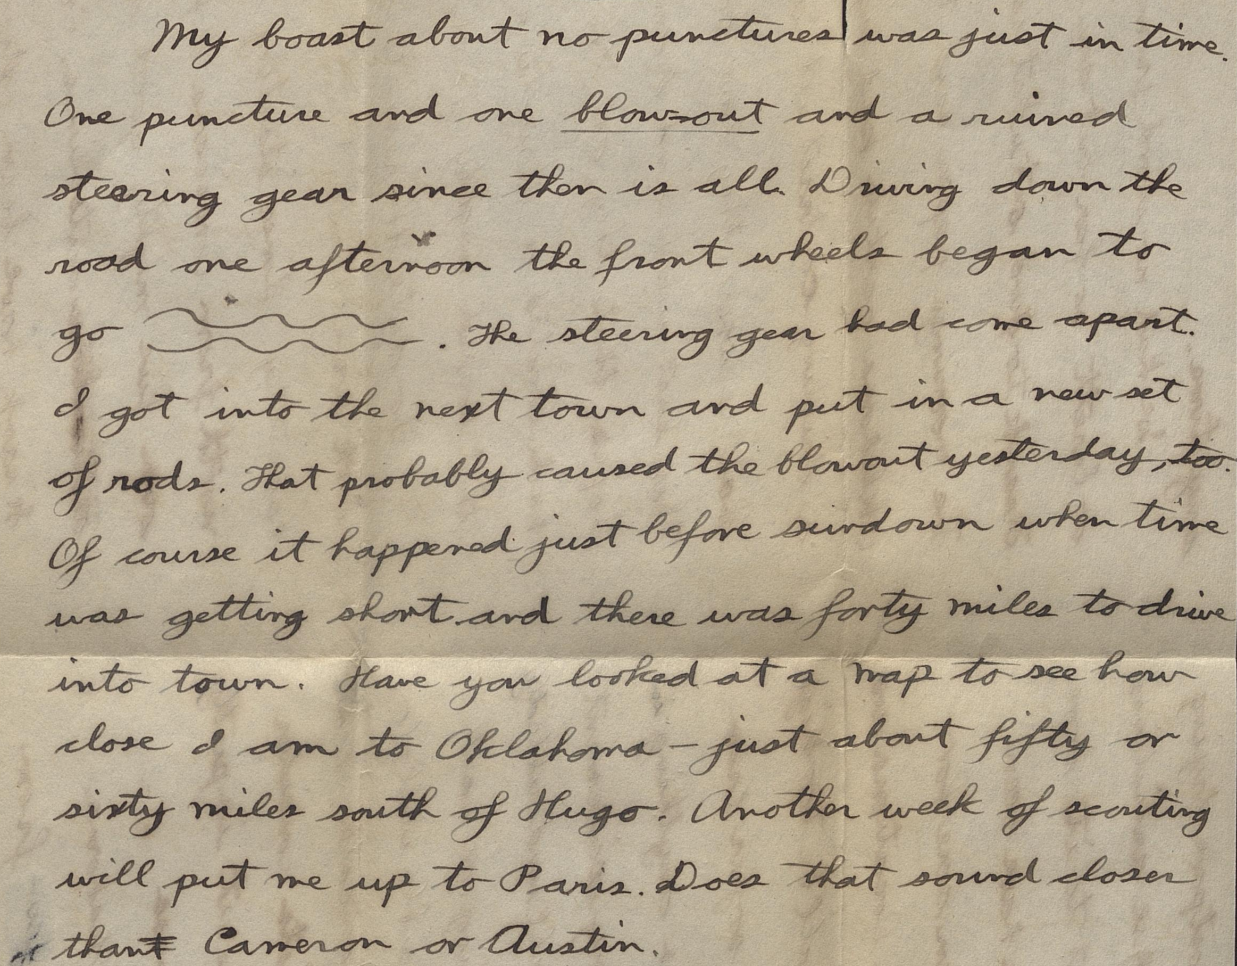 My boast about no punctures was just in time.
One puncture and one blow-out and a ruined
steering gear since then is all. Driving down the
road one afternoon the front wheels began to
go . The steering gear had come apart.
I got into the next town and put in a new set
of rods. That probably caused the blowout yesterday, too.
Of course it happened just before sundown when time
was getting short and there was forty miles to drive
into town. Have you looked at a map to see how
close I am to Oklahoma – just about fifty or
sixty miles south of Hugo. Another week of scouting
will put me up to Paris. Does that sound closer
than Cameron or Austin.